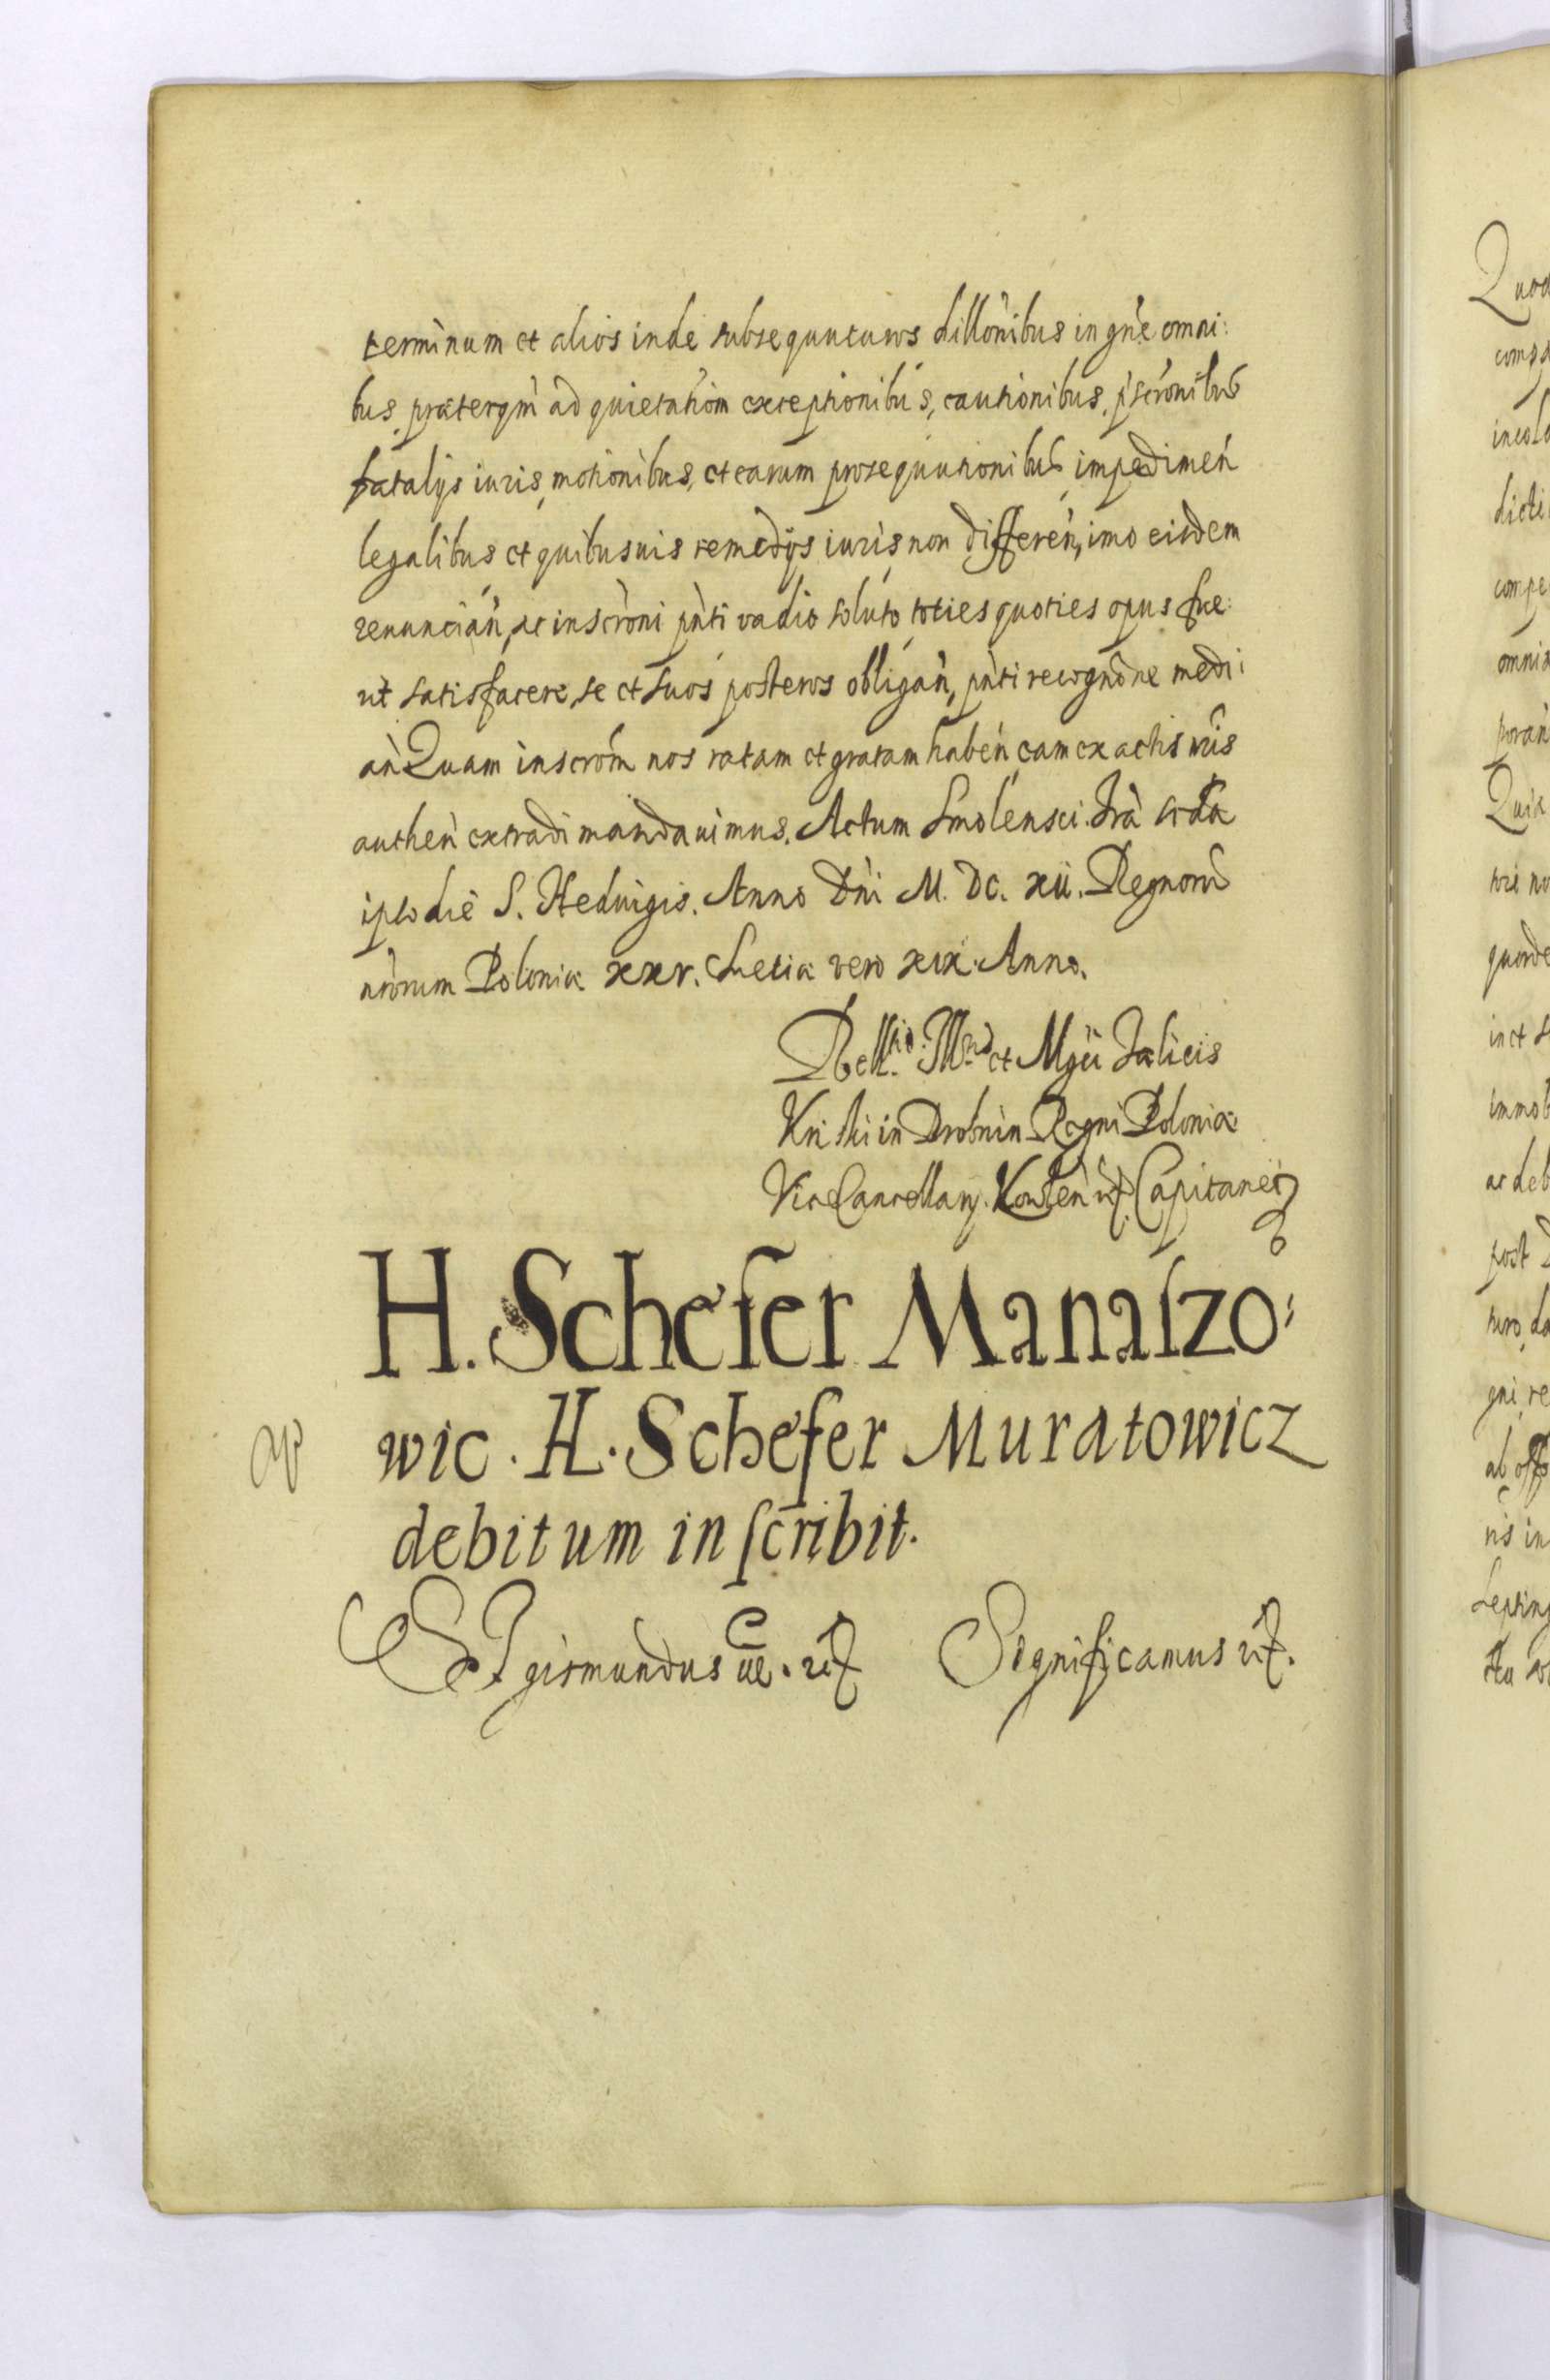 terminum et alios inde subsequuturos dillônibus in gñe omni:
bus, præterqm̃ ad quietatiom exceptionibus, cautionibus, p̃scrõnibus
fatalijs iuris, motionibus, et earum prosequutionibus, impedimeñ
legalibus et quibusuis remedijs iuris non differeñ, imo eisdem
renunciañ, ac inscrõni pñti vadio soluto toties quoties opus fue:
rit satisfacere, se et suos posteros obligañ, pñti recognõne medi:
añ Quam inscrõm nos ratam et gratam habeñ, eam ex actis nr̃is
autheñ extradi mandauimus. Actum Smolensci
ipso die S. Heduigis. Anno Dñi M. DC. xii. Regnorũ
nr̃orum Poloniæ xxv. Suetiæ vero xix. Anno.
Rell. Ill. et Mgci Fælicis
Kriski in Drobnin Regni Poloniæ
ViceCancellarij. Capitanei
H. Schefer Manaſzo:
wic. H. Schefer Muratowicz
debitum inſcribit.
Sigismundus etc. Significamus etc.
Quod
incola
dicti
compe
omnia
Quia
quonde
in et
immob
ac deb
post
gni, re
ab offo